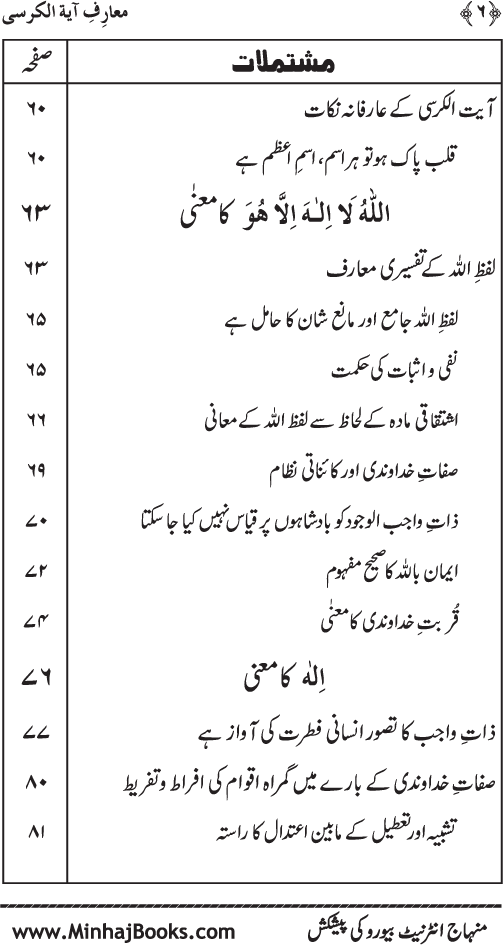 ﴿۶﴾ معارفِ آیۃ الکرسی
مشتملات صفحہ
آیت الکرسی کے عارفانہ نکات ۶۰
قلب پاک ہو تو ہر اسم، اسمِ اعظم ہے ۶۰
اللّٰهُ لَا اِلٰـهَ اِلَّا هُوَ کا معنٰی ۶۳
لفظِ اللہ کے تفسیری معارف ۶۳
لفظِ اللہ جامع اور مانع شان کا حامل ہے ۶۵
نفی و اثبات کی حکمت ۶۵
اشتقاقی مادہ کے لحاظ سے لفظ اللہ کے معانی ۶۶
صفاتِ خداوندی اور کائناتی نظام ۶۹
ذاتِ واجب الوجود کو بادشاہوں پر قیاس نہیں کیا جا سکتا ۷۰
ایمان باللہ کا صحیح مفہوم ۷۲
قُربتِ خداوندی کا معنٰی ۷۴
اِلٰہ کا معنی ۷۶
ذاتِ واجب کا تصور انسانی فطرت کی آواز ہے ۷۷
صفاتِ خداوندی کے بارے میں گمراہ اقوام کی افراط و تفریط ۸۰
تشبیہ اور تعطیل کے مابین اعتدال کا راستہ ۸۱
منہاج انٹرنیٹ بیورو کی پیشکش www.MinhajBooks.com